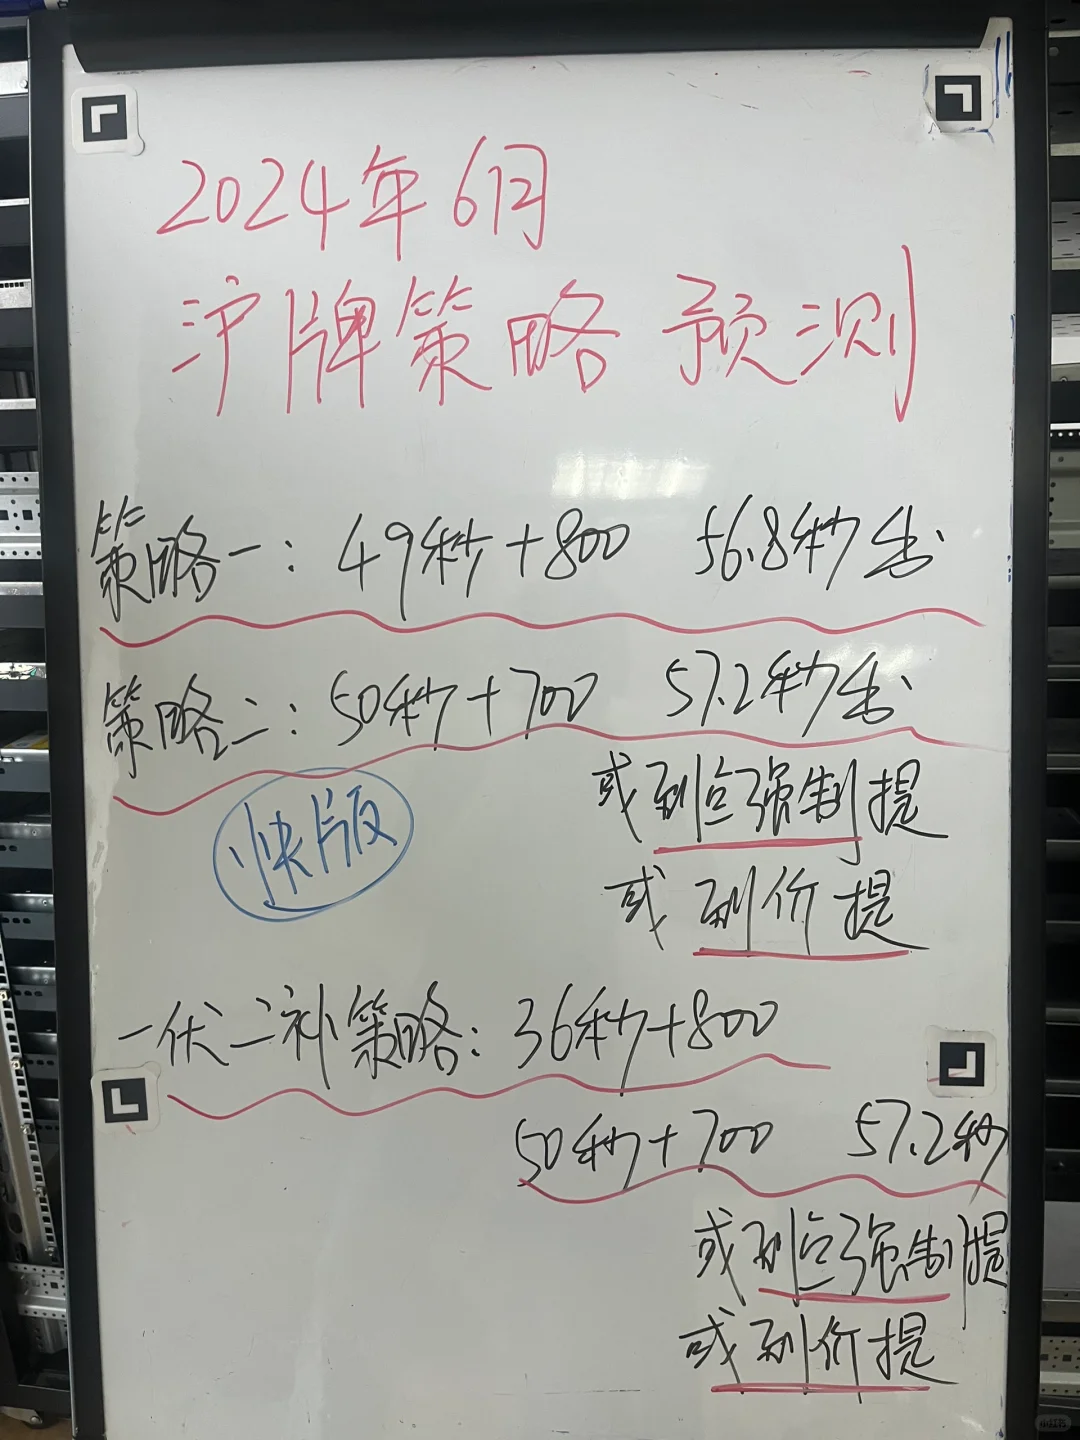 2024年6月
沪牌策略预测
策略一：49秒+800 56.8秒出
策略二：50秒+700 57.2秒出
或到点强制提
快版
或到价提
一伏二补策略：36秒+800
50秒+700 57.2秒
或到点强制提
或到价提
小红书